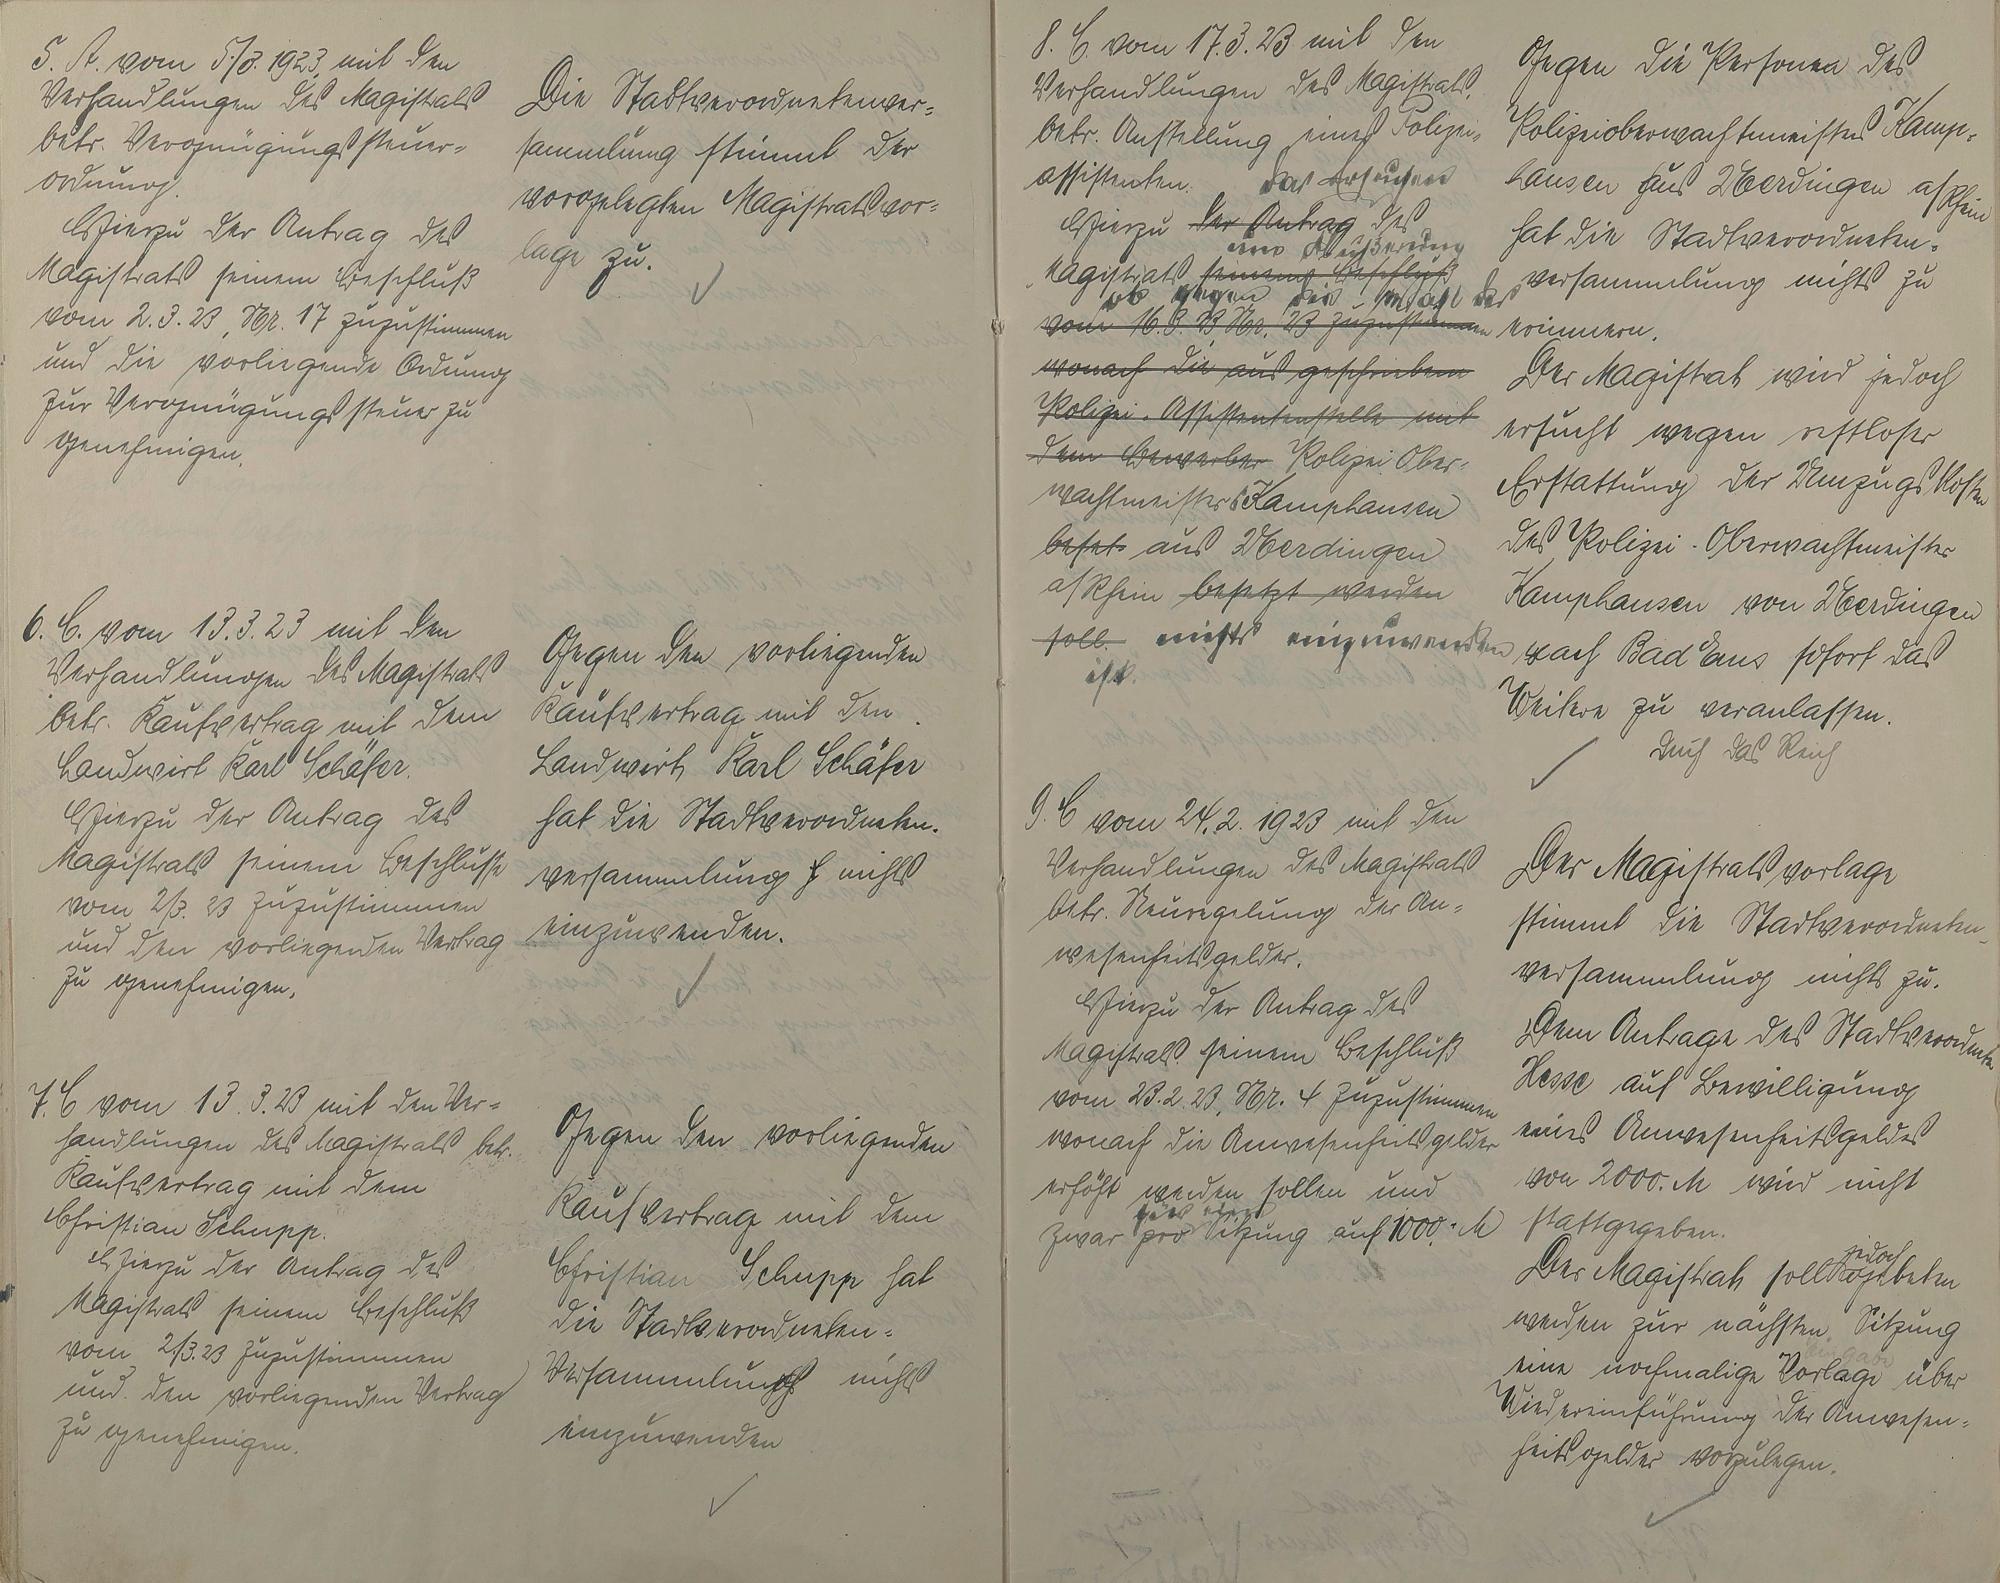 5. A. vom 5./3. 1923, mit den
Verhandlungen des Magistrats
betr. Vergnügungssteuer-
ordnung.
Hierzu der Antrag des
Magistrats seinem Beschluß
vom 2.3.23, Nr. 17 zuzustimmen
und die vorliegende Ordnung
zur Vergnügungssteuer zu
genehmigen.
Die Stadtverordnetenver-
sammlung stimmt der
vorgelegten Magistratsvor-
lage zu.
6. C. vom 13.3.23 mit den
Verhandlungen des Magistrats
betr. Kaufvertrag mit dem
Landwirt Karl Schäfer.
Hierzu der Antrag des
Magistrats seinem Beschlusse
vom 2/3. 23 zuzustimmen
und den vorliegenden Vertrag
zu genehmigen.
Gegen den vorliegenden
Kaufvertrag mit den
Landwirt Karl Schäfer
hat die Stadtverordneten-
versammlung nichts
einzuwenden.
7. C vom 13.3.23 mit den Ver-
handlungen des Magistrats betr.
Kaufvertrag mit dem
Christian Schupp.
Hierzu der Antrag des
Magistrats seinem Beschluß
vom 2/3.23 zuzustimmen
und den vorliegenden Vertrag
zu genehmigen.
Gegen den vorliegenden
Kaufvertrag mit dem
Christian Schupp hat
die Stadtverordneten-
Versammlung nichts
einzuwenden
8. C. vom 17.3.23 mit den
Verhandlungen des Magistrats,
betr. Anstellung eines Polizei-
assistenten.
das Ersuchen
Hierzu der Antrag des
um Äußerung
Magistrats seinem Beschluß
ob gegen die Wahl des
vom 16.3.23 Nr. 23 zuzustimmen
wonach die ausgeschriebene
Polizei-Assistentenstelle mit
dem Bewerber Polizei Ober-
wachtmeisters Kamphausen
beset- aus Uerdingen
a/Rhein besetzt werden
soll. nichts einzuwenden
ist.
Gegen die Personen des
Polizeioberwachtmeisters Kamp-
hausen aus Uerdingen a/Rhein
hat die Stadtverordneten-
versammlung nichts zu
erinnern.
Der Magistrat wird jedoch
ersucht wegen restloser
Erstattung der Umzugskosten
des Polizei-Oberwachtmeister
Kamphausen von Uerdingen
nach Bad Ems sofort das
Weitere zu veranlassen.
durch das Reich
9. C vom 24.2. 1923 mit den
Verhandlungen des Magistrats
betr. Neuregelung der An-
wesenheitsgelder.
Hierzu der Antrag des
Magistrats seinem Beschluß
vom 23.2.23, Nr. 4 zuzustimmen
wonach die Anwesenheitsgelder
erhöht werden sollen und
für eine
zwar pro Sitzung auf 1000,- M
Der Magistratsvorlage
stimmt die Stadtverordneten-
versammlung nichts zu.
Dem Antrage des Stadtverordneten
Hesse auf Bewilligung
eines Anwesenheitsgeldes
von 2000.M wird nicht
stattgegeben.
jedoch
Der Magistrat soll gebeten
werden zur nächsten Sitzung
eine nochmalige Vorlage über
Wiedereinführung der Anwesen-
heitsgelder vorzulegen.